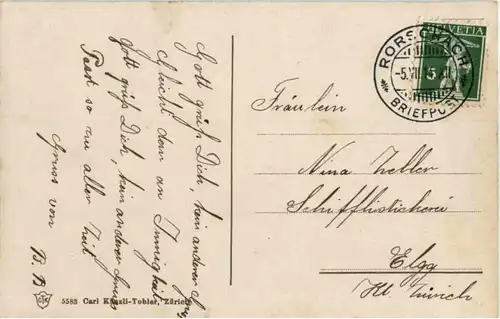 Gott grüß Dich, kein anderer Gruß
Gleicht dem an Innigkeit
Gott grüß Dich, kein anderer Gruss
Passt so zu aller Zeit
Gruss von
B. B
Fräulein
Nina Zeller
Schifflistickerei
Elgg
Kt. Zürich
HELVETIA
5
RORSCHACH
-5.VII
BRIEFPOST
5583 Carl Künzli-Tobler, Zürich